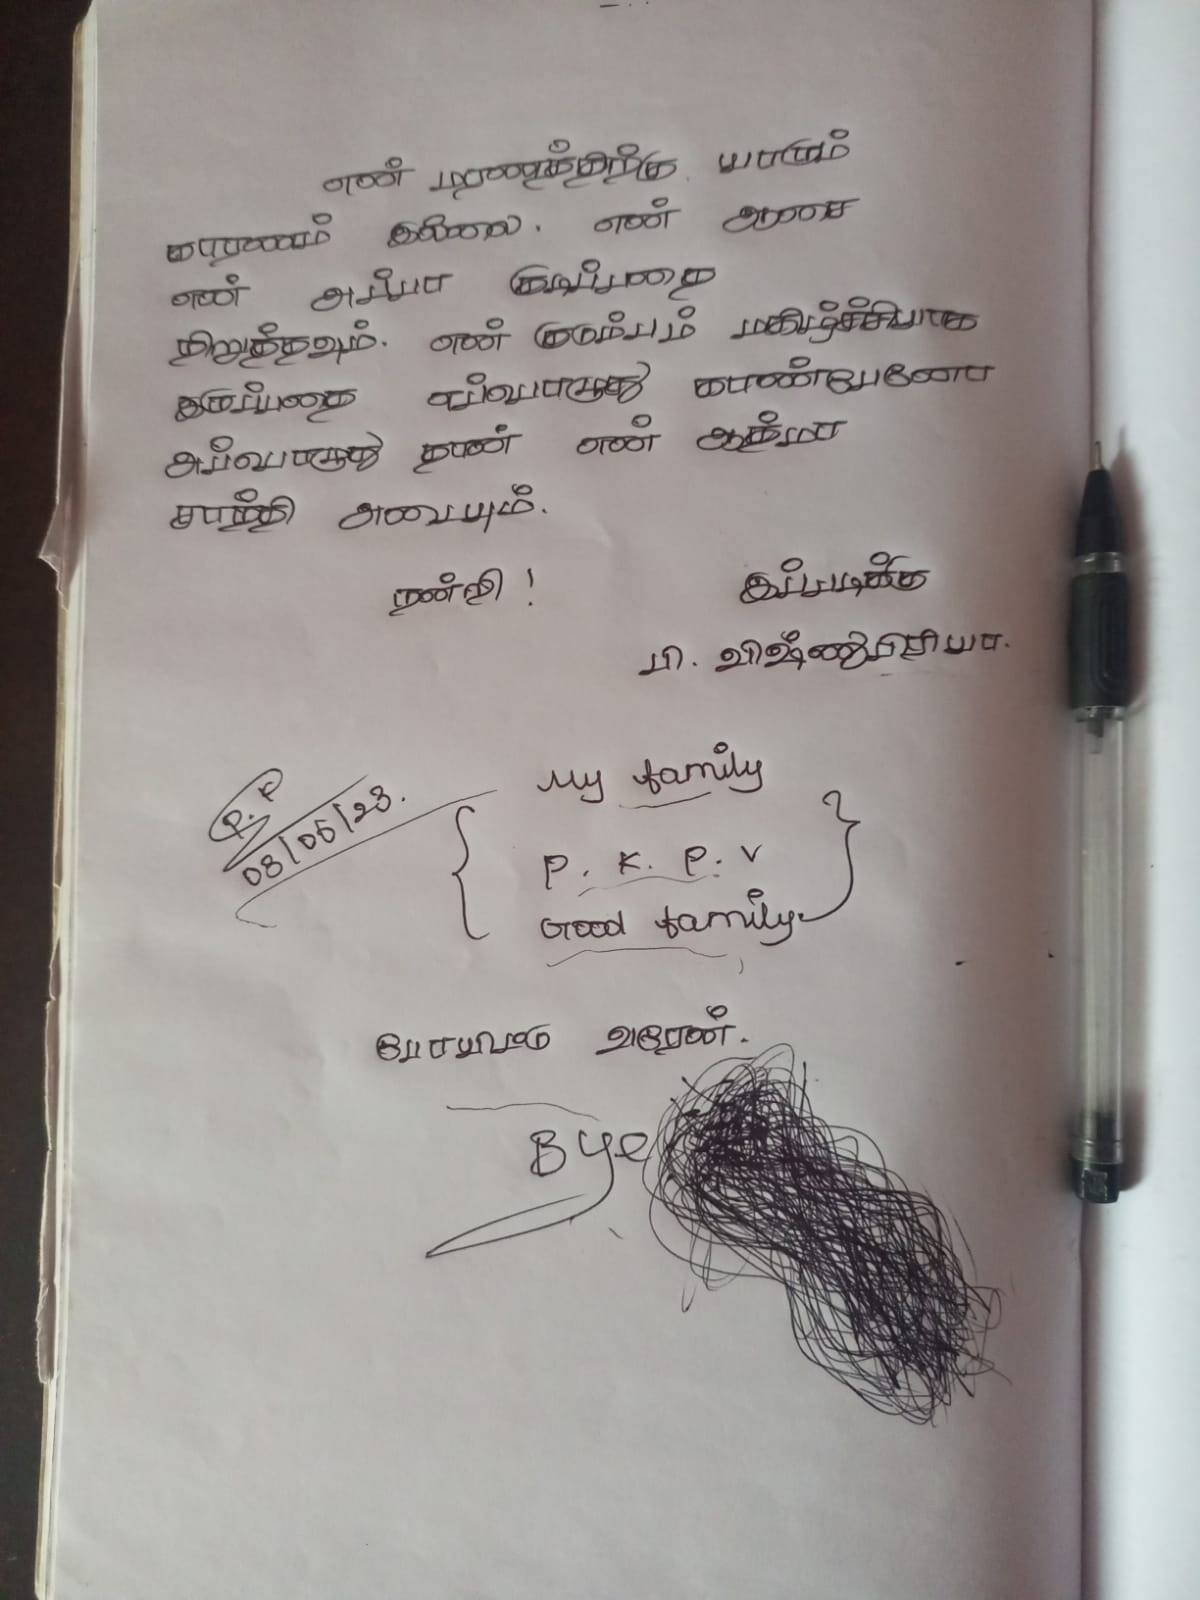 என் மரணத்திற்கு யாரும்
காரணம் இல்லை. என் ஆசை
என் அப்பா குடிப்பதை
நிறுத்தவும். என் குடும்பம் மகிழ்ச்சியாக
இருப்பதை எப்பொழுது காண்பேனோ
அப்பொழுது தான் என் ஆத்மா
சாந்தி அடையும்.
நன்றி! இப்படிக்கு
பி. விஷ்ணுபிரியா.
P. P
08/05/23.
My family
P. K. P. V
Good family
போயிட்டு வரேன்.
Bye